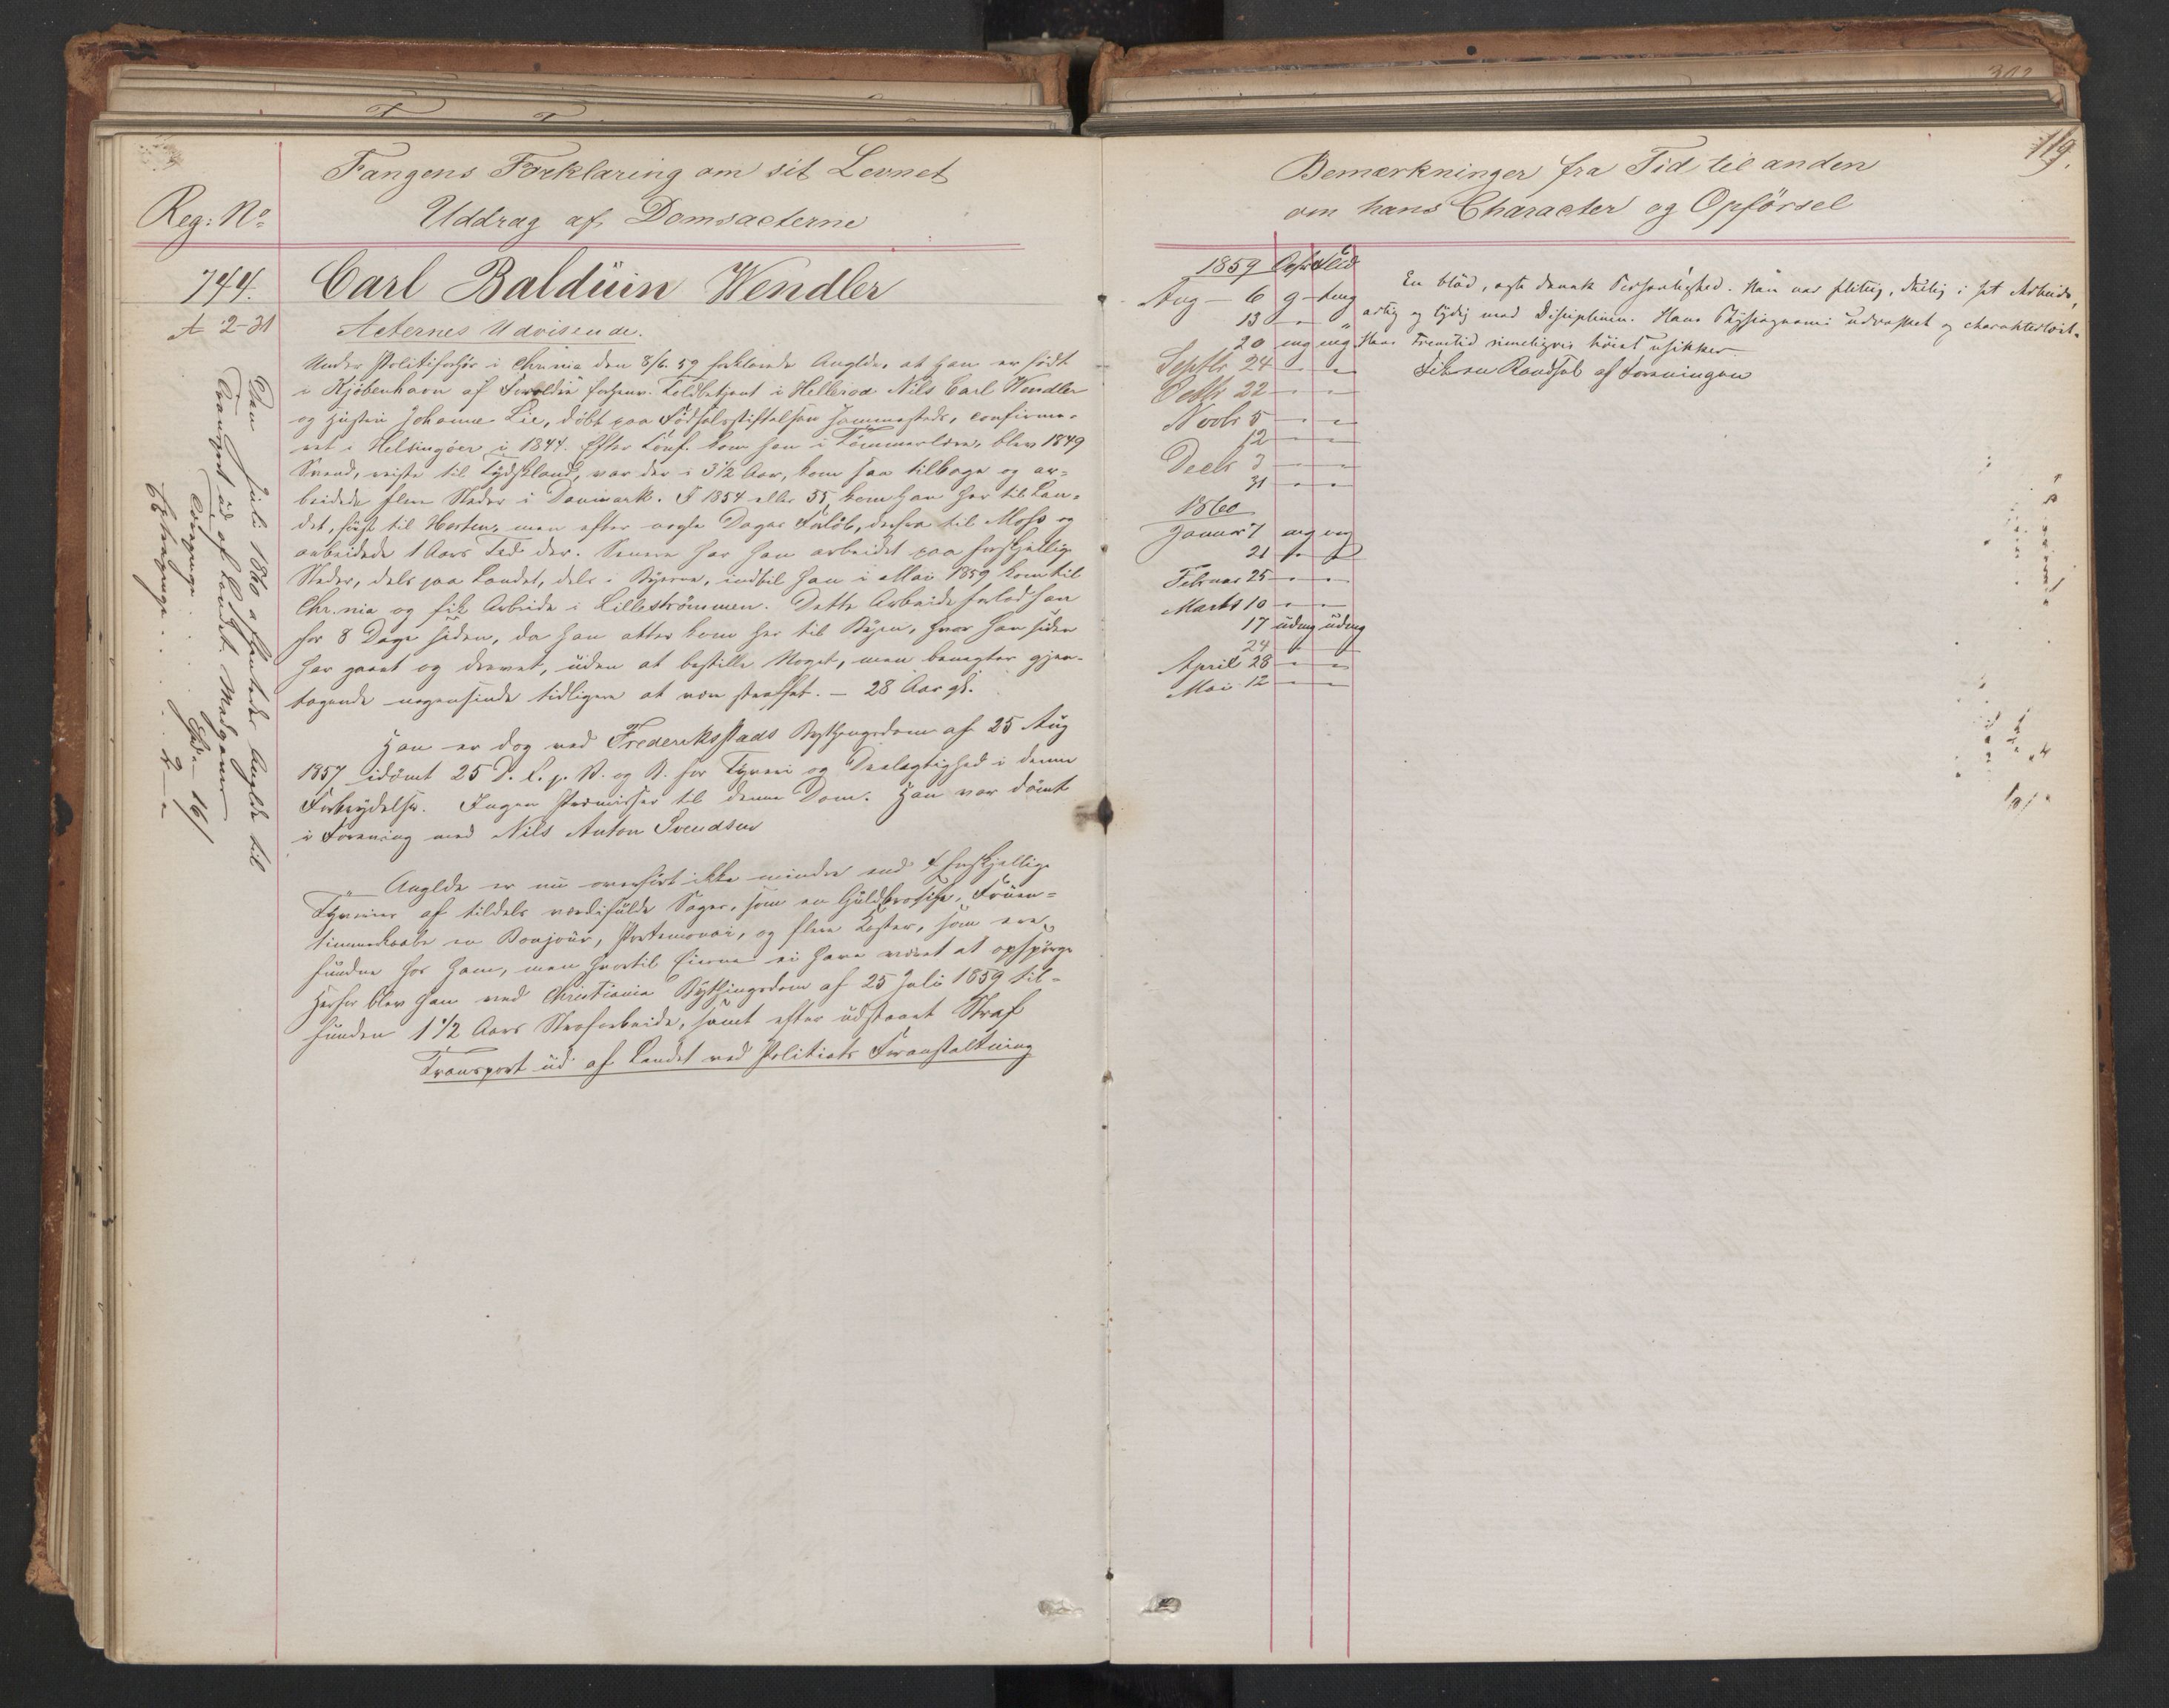 Fangens Forklaring om sit Levnet
Reg: No
Uddrag af Domsacterne
744.
Carl Balduin Wendler
A 2-31
Acternes Udvisende.
Under Politiforhør i Chr.nia den 8/6 59 forklarede Anglde, at han er født
i Kjöbenhavn af Forældre forhenv. Toldbetjent i Hellerød Nils Carl Wendler
og Hustru Johanne Lie, döbt paa Födselsstiftelsen sammesteds, confirme-
ret i Helsingöer i 1844. Efter Conf. kom han i Tömmerlære, blev 1849
Svend, reiste til Tydskland, var der i 3 1/2 Aar, kom saa tilbage og ar-
beidede flere Steder i Danmark. I 1854 eller 55 kom han her til Lan-
det, först til Horten, men efter nogle Dages Forlöb, derfra til Moss og
arbeidede 1 Aars Tid der. Senere har han arbeidet paa forskjellige
Steder, dels paa Landet, dels i Byerne, indtil han i Mai 1859 kom til
Chr.nia og fik Arbeide i Lilleströmmen. Dette Arbeide forlod han
for 8 Dage siden, da han atter kom her til Byen, hvor han siden
har gaaet og drevet, uden at bestille Noget, men benegter gjen-
tagende nogensinde tidligere at være straffet. – 28 Aar gl.
Han er dog ved Frederiksstads Bythingsdom af 25 Aug
1857 idömt 25 D. F. p. V. og B. for Tyveri og Deelagtighed i denne
Forbrydelse. Ingen Præmisser til denne Dom. Han var dömt
i Forening med Nils Anton Svendsen
Anglde er nu overfört ikke mindre end 4 forskjellige
Tyverier af tildels værdifulde Sager, som en Guldbroche, Fruen-
timmerkaabe en Bonjour, Portemonai, og flere Koster, som ere
fundne hos ham, men hvortil Eierne ei have været at opspörge
Herfor blev han ved Christiania Bythingsdom af 25 Juli 1859 til-
funden 1 1/2 Aars Strafarbeide, samt efter udstaaet Straf
Transport ud af Landet ved Politiets Foranstaltning
Den Juli 1860 afhentedes Anglde til
Transport ud af Landet. Medgaver
Overpenge . . . Spd – 16/
Extrapenge . . . . 2 – "
Bemærkninger fra Tid til anden
om hans Character og Opförsel
119.
1859 Opf Flid
Aug – 6 g – meg
13 – "
20 meg meg
Septbr 24 – –
Octbr 22 – –
Novbr 5 – –
12 – –
Decbr 3 – –
31 – –
1860
Januar 7 meg meg
21 – –
Februar 25 – –
Marts 10 – –
17 udmg udmg
24 – –
April 28 – –
Mai 12 – –
En blöd, ægte dansk Personlighed. Han var flittig, dülig i sit Arbeide,
artig og lydig mod Disciplinen. Hans Physiognomi udvasket og charakterlöst.
Hans Fremtid rimeligvis höiest usikker.
Fik en Randsel af Foreningen